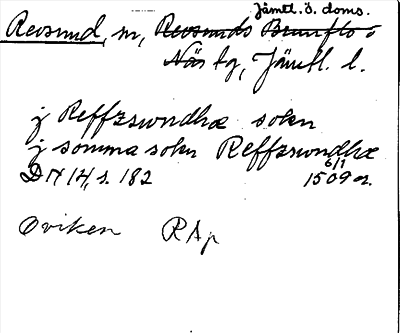 Jämtl. ö. doms.
Revsund, sn, Revsunds Brunflo o
Näs tg, Jämtl. l.
j Reffzswndhæ sokn
j somma sokn Reffzswndhæ
DN 14, s. 182 6/1 1509 or.
Oviken RAp